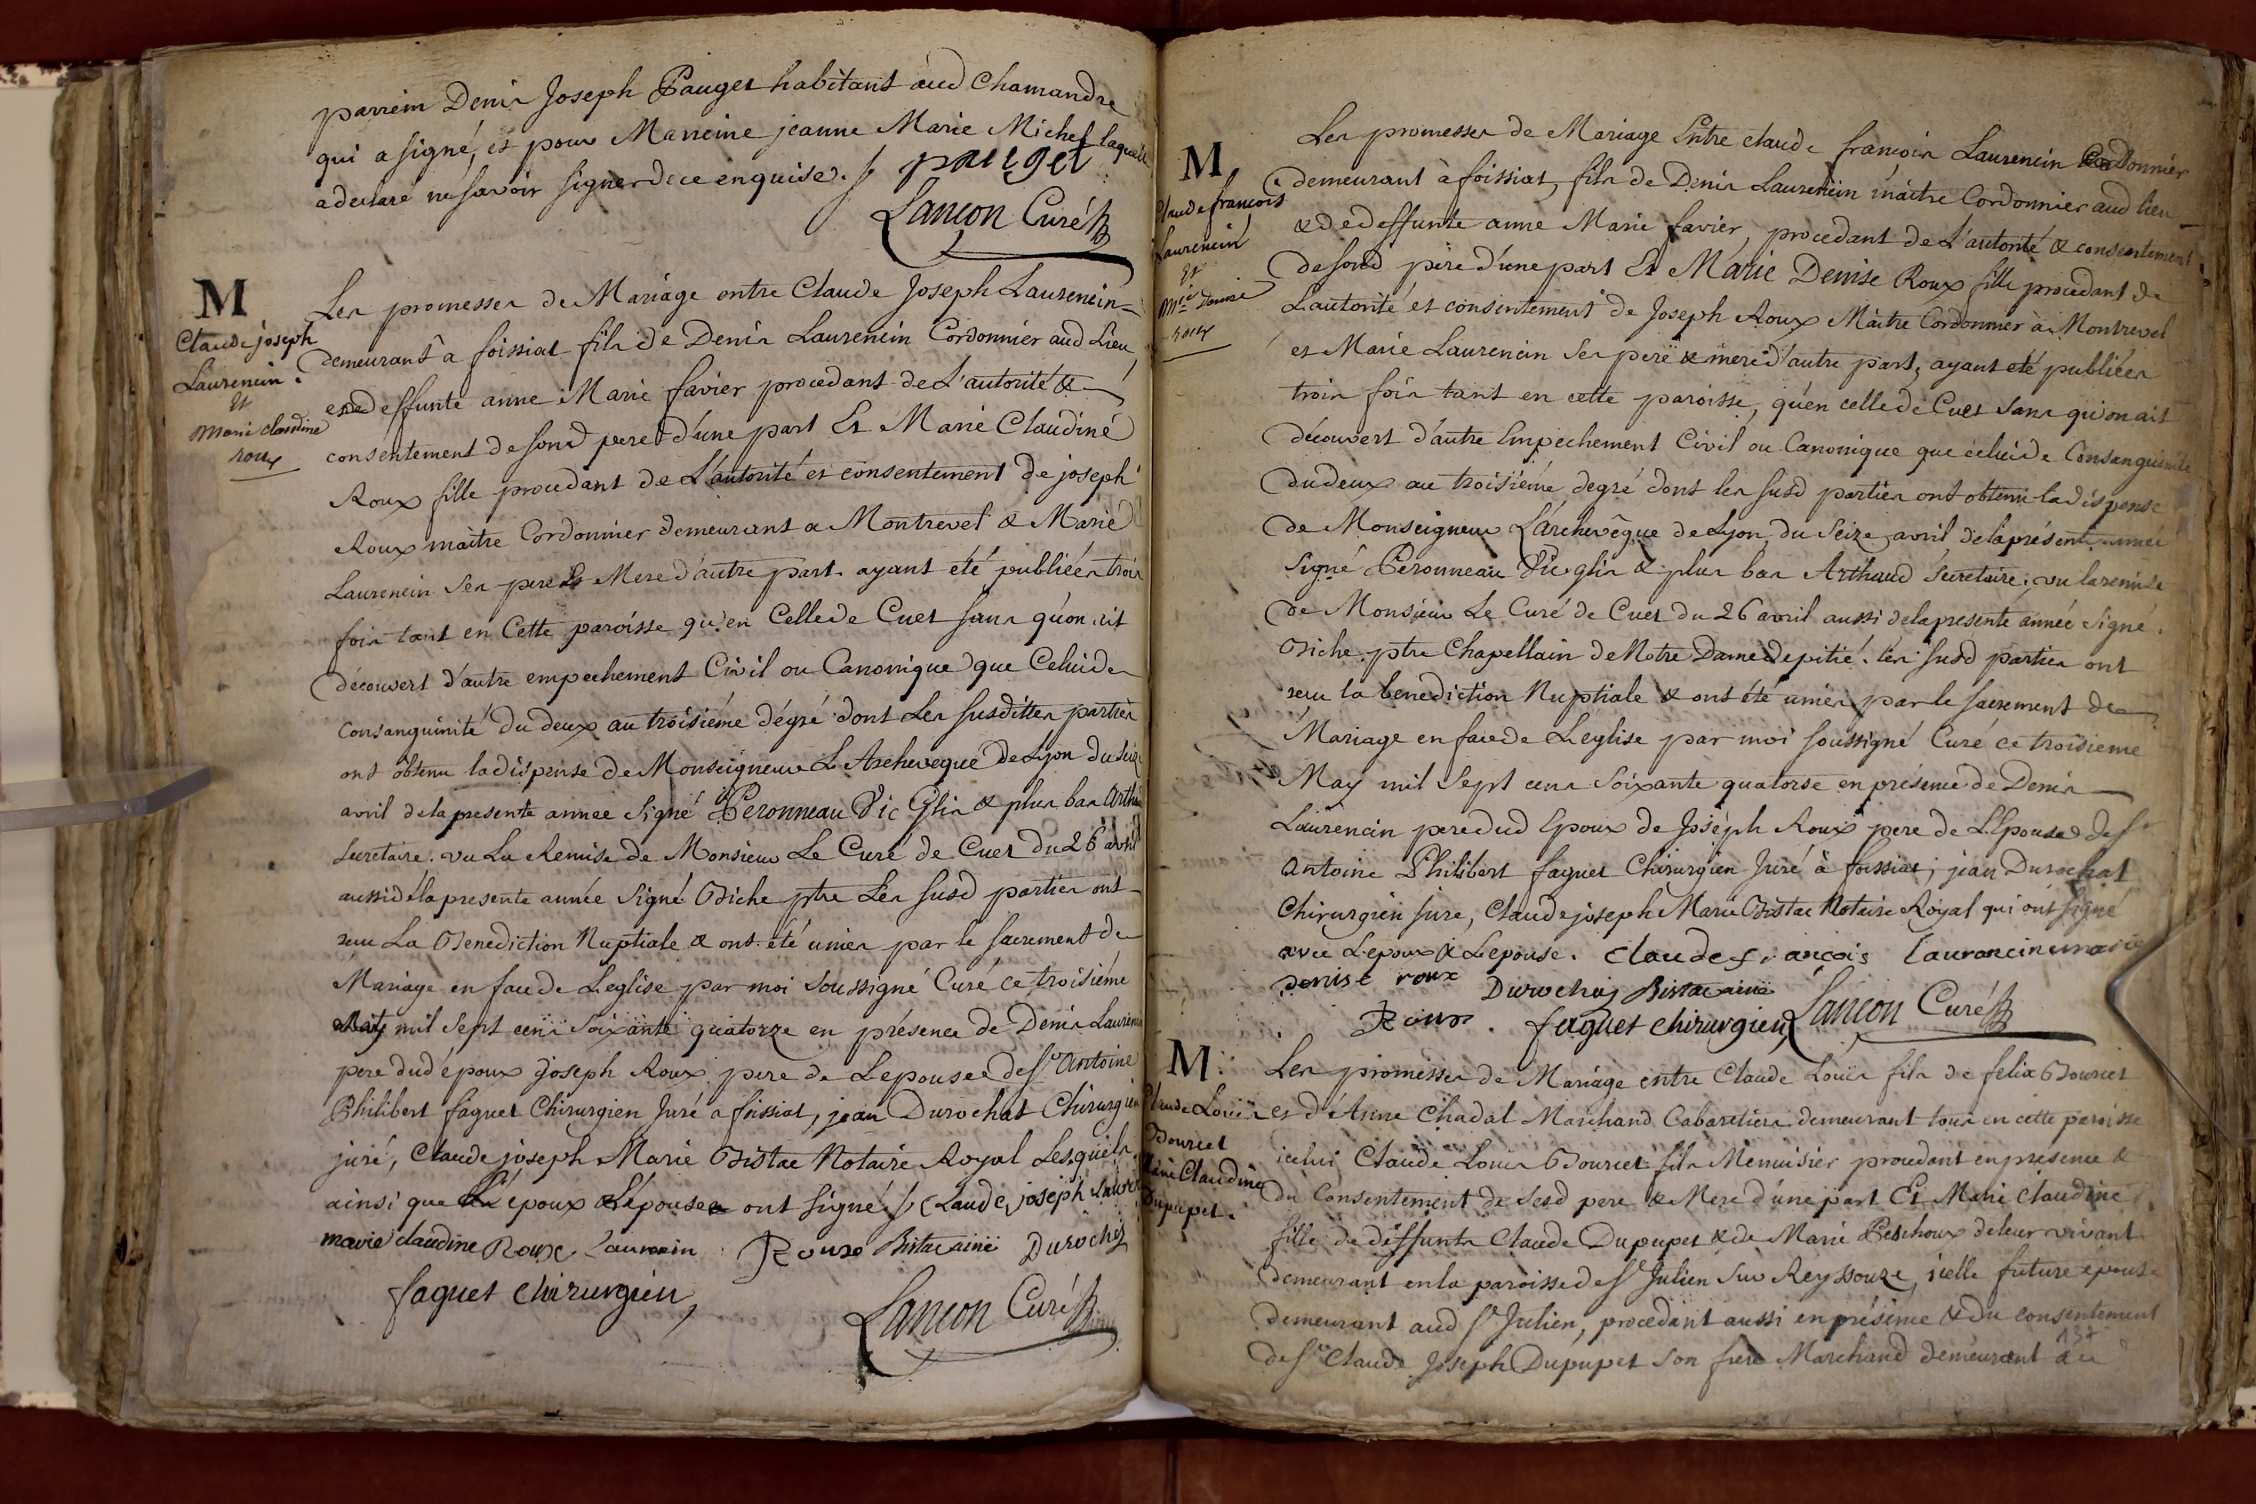 parrein Denis Joseph Pauget habitant aud Chamandre
qui a signé, et pour Marreine jeanne Marie Michel laquelle
a declaré ne savoir signer de ce enquise. / pauget
Lancon Curé
M
Claude joseph
Laurencin.
Et
Marie claudine
roux
Les promesses de Mariage entre Claude Joseph Laurencin
demeurant a foissiat fils de Denis Laurencin Cordonnier aud Lieu
et de deffunte anne Marie favier procedant de L'autorité &
consentement de sond pere d'une part Et Marie Claudine
Roux fille procedant de L'autorité et consentement de joseph
Roux maitre Cordonnier demeurant a Montrevel & Marie
Laurencin ses pere Et Mere d'autre part. ayant été publiées trois
fois tant en Cette paroisse qu'en Celle de Cuet sans qu'on ait
découvert d'autre empechement Civil ou Canonique que Celui de
consanguinité du deux au troisiéme dégré dont Les susdittes parties
ont obtenu la dispense de Monseigneur L'Archeveque de Lyon du seize
avril de la presente année signé Peronneau Vic Glis & plus bas Arthaud
secretaire. vu La Remise de Monsieur Le Curé de Cuet du 26 avril
aussi de la presente année signé Biche ptre Les susd parties ont
recu La Benediction Nuptiale & ont été unies par le sacrement de
Mariage en face de L'eglise par moi soussigné Curé ce troisiéme
May mil sept cens soixante quatorze en présence de Denis Laurencin
pere dud époux joseph Roux pere de L'epousee de sr Antoine
Philibert faguet Chirurgien Juré a foissiat, jean Durochat Chirurgien
juré, Claude joseph Marie Bistac Notaire Royal Lesquels
ainsi que L'époux & L'épousee ont signé / Claude joseph Lauren
marie claudine Roux Laurencin Roux Bistac ainé Durochaz
faguet chirurgien,
Lancon Curé
M
Claude francois
Laurencin
Et
Mie Denise
roux
Les promesses de Mariage Entre claude francois Laurencin Cordonnier
demeurant à foissiat, fils de Denis Laurencin maitre Cordonnier aud lieu
& de deffunte anne Marie favier, procedant de L'autorité & consentement
de sond père d'une part Et Marie Denise Roux fille procedant de
L'autorité et consentement de Joseph Roux Maitre Cordonnier à Montrevel
et Marie Laurencin ses pere & mere d'autre part, ayant été publiées
trois fois tant en cette paroisse, qu'en celle de Cuet sans qu'on ait
découvert d'autre Empechement Civil ou Canonique que celui de Consanguinité
du deux au troisiéme degré dont les susd parties ont obtenu la dispense
de Monseigneur L'Archevêque de Lyon, du seize avril de la présente année
signé Peronneau Vic glis & plus bas Arthaud secretaire, vu la remise
de Monsieur Le Curé de Cuet du 26 avril aussi de la presente année signé
Biche ptre Chapellain de Notre Dame de pitié. les susd parties ont
recu la benediction Nuptiale & ont été unies par le sacrement de
Mariage en face de L'eglise par moi soussigné Curé ce troisieme
May mil sept cens soixante quatorse en présence de Denis
Laurencin pere dud Epoux de Joseph Roux pere de L'Epousee de sr
Antoine Philibert faguet Chirurgien Juré à foissiat, jean Durochat
Chirurgien juré, Claude joseph Marie Bistac Notaire Royal qui ont signé
avec L'epoux & L'epouse. claude francois lauroncin marie
denise roux Durochaz Bistac ainé
Roux. faguet chirurgien, Lancon Curé
M
Claude Louis
Bourcet
Marie Claudine
Dupupet.
Les promesses de Mariage entre Claude Louis fils de felix Bourcet
et d'Anne Chadal Marchand Cabaretiers demeurant tous en cette paroisse
icelui Claude Louis Bourcet fils Menuisier procedant en presence &
du Consentement de sesd pere & Mere d'une part Et Marie Claudine
fille de deffunts Claude Dupupet & de Marie Peschoux de leur vivant
demeurant en la paroisse de St Julien sur Reyssouze, icelle future épouse
demeurant aud St Julien, procedant aussi en présence & du consentement
de sr Claude Joseph Dupupet son frere Marchand demeurant au
137